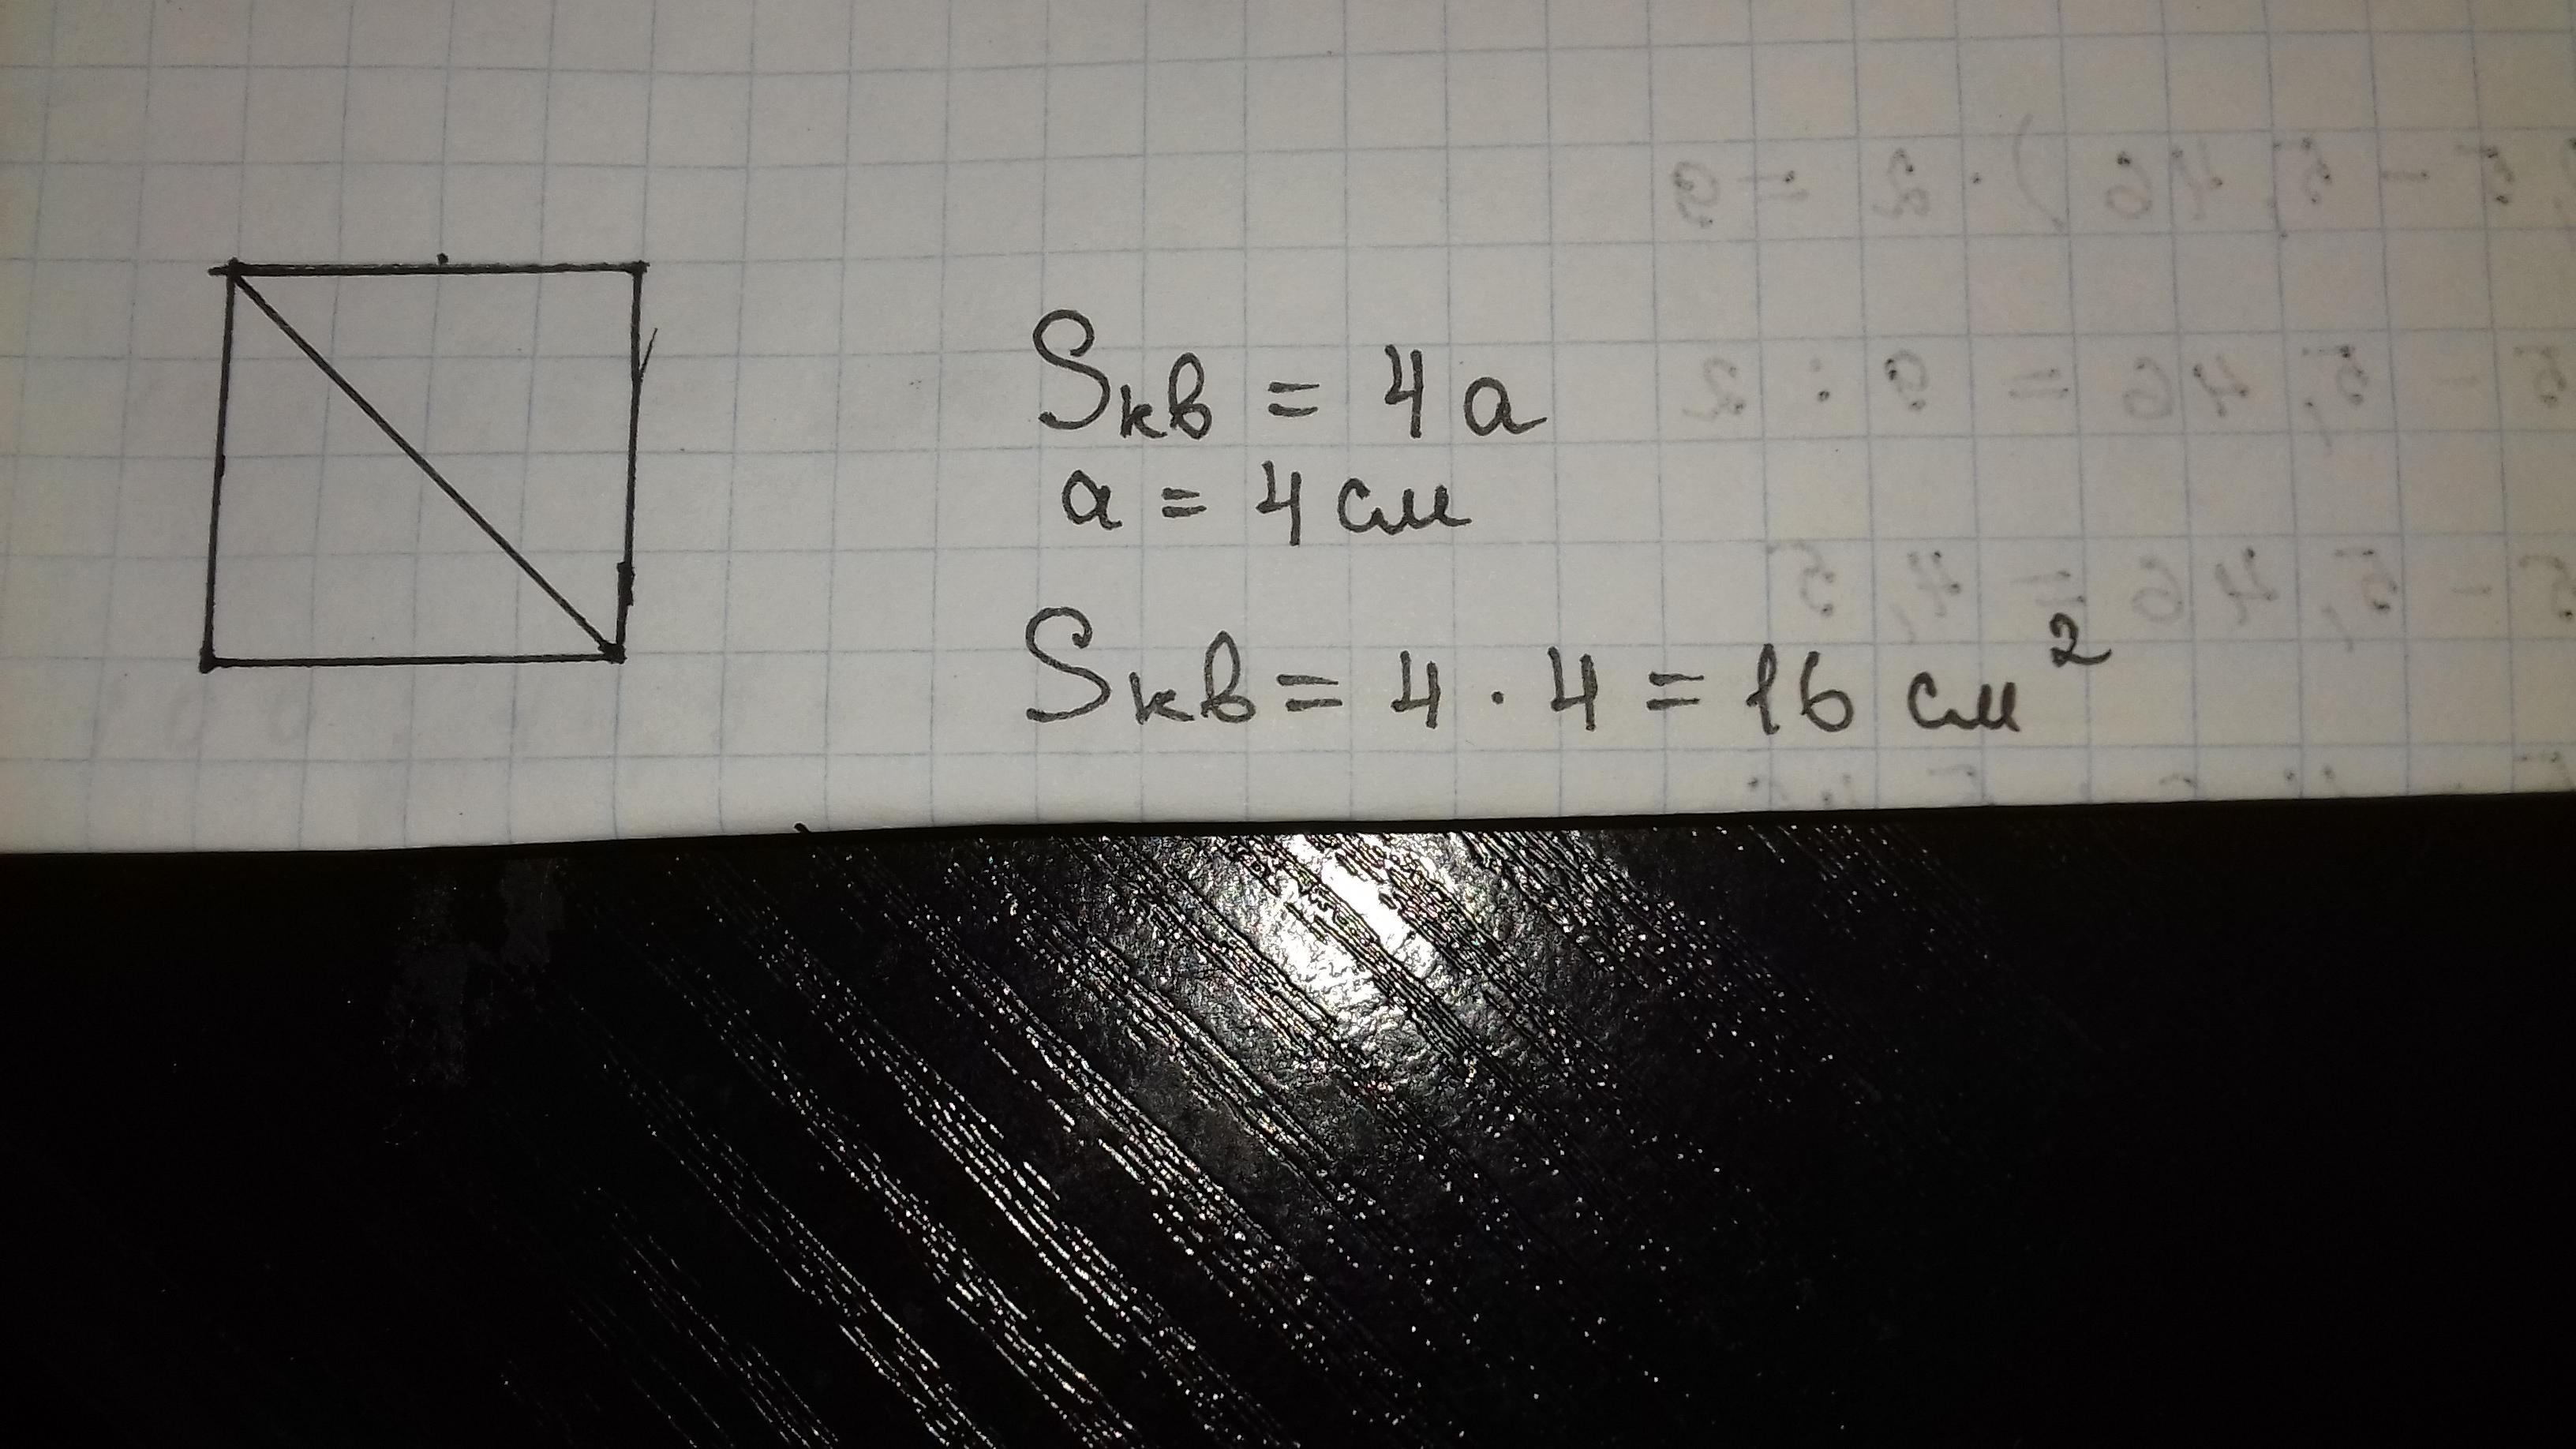 Sкв = 4 a
a = 4 см
Sкв = 4 · 4 = 16 см²